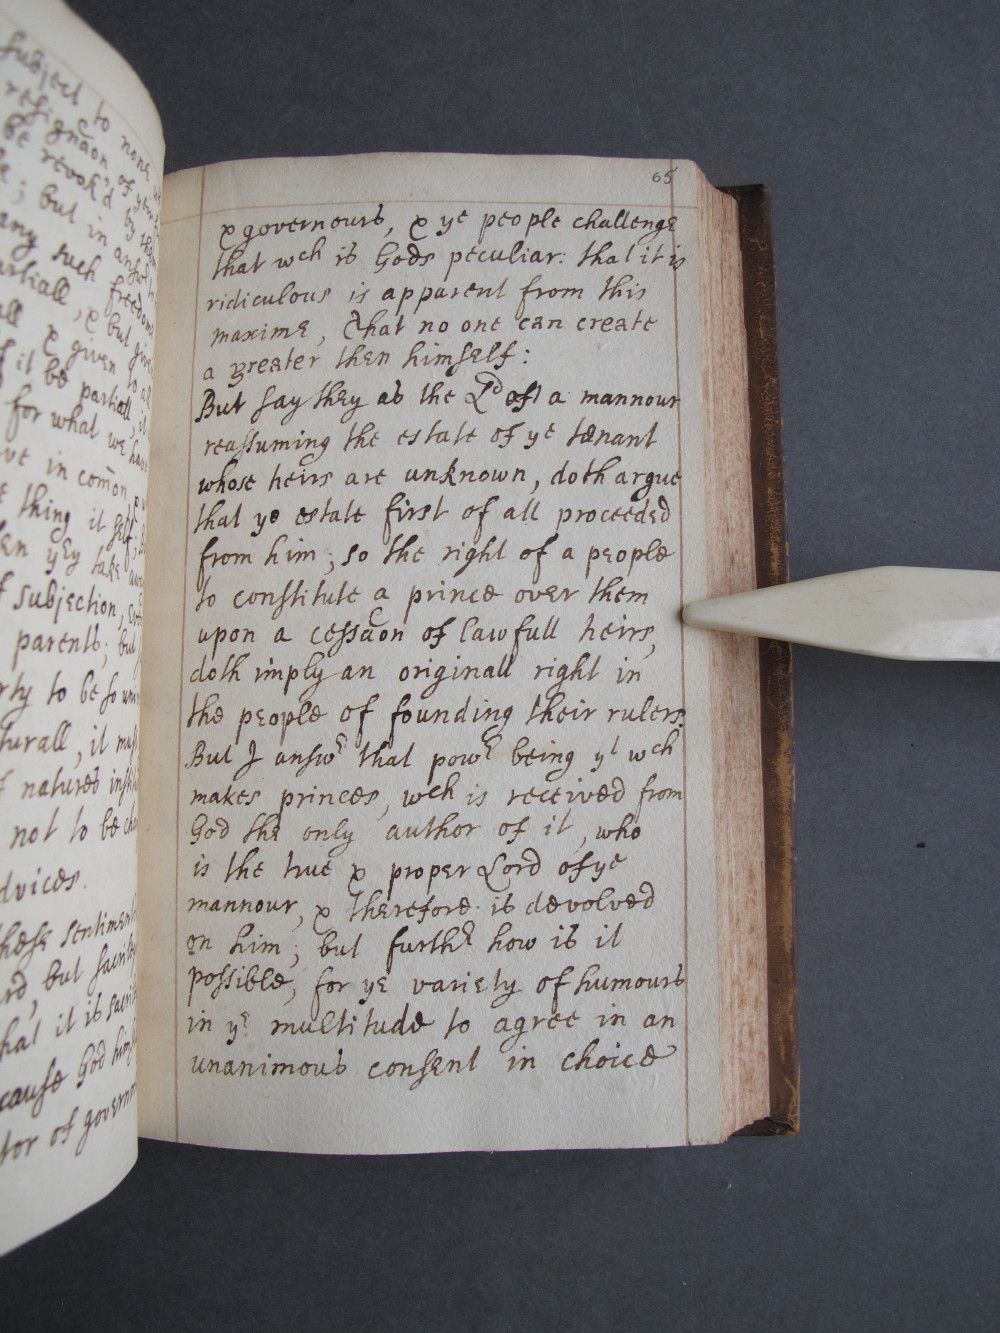 subject to none
resignaon of
be revok'd by
; but in answ
any such freedoms
partiall, & but given
all & given to all
if it be partiall, it
for what we have
ve in comon,
thing it self,
en yey take
f subjection,
parents; but
rty to be so
turall, it must
f natures
not to be
dvices.
these sentiments
rd, but
hat it is
cause God himself
tor of governm
65
& governours, & ye people challenge
that wch is Gods peculiar: that it is
ridiculous is apparent from this
maxime, that no one can create
a greater then himself:
But say they as the Ld of a mannour
reassuming the estate of ye tenant
whose heirs are unknown, doth argue
that ye estate first of all proceeded
from him; so the right of a people
to constitute a prince over them
upon a cessaon of lawfull heirs,
doth imply an originall right in
the people of founding their rulers.
But I answr that powr being yt wch
makes princes, wch is received from
God the only author of it, who
is the true & proper Lord of ye
mannour, & therefore is devolved
on him; but furthr how is it
possible, for ye variety of humours
in ye multitude to agree in an
unanimous consent in choice